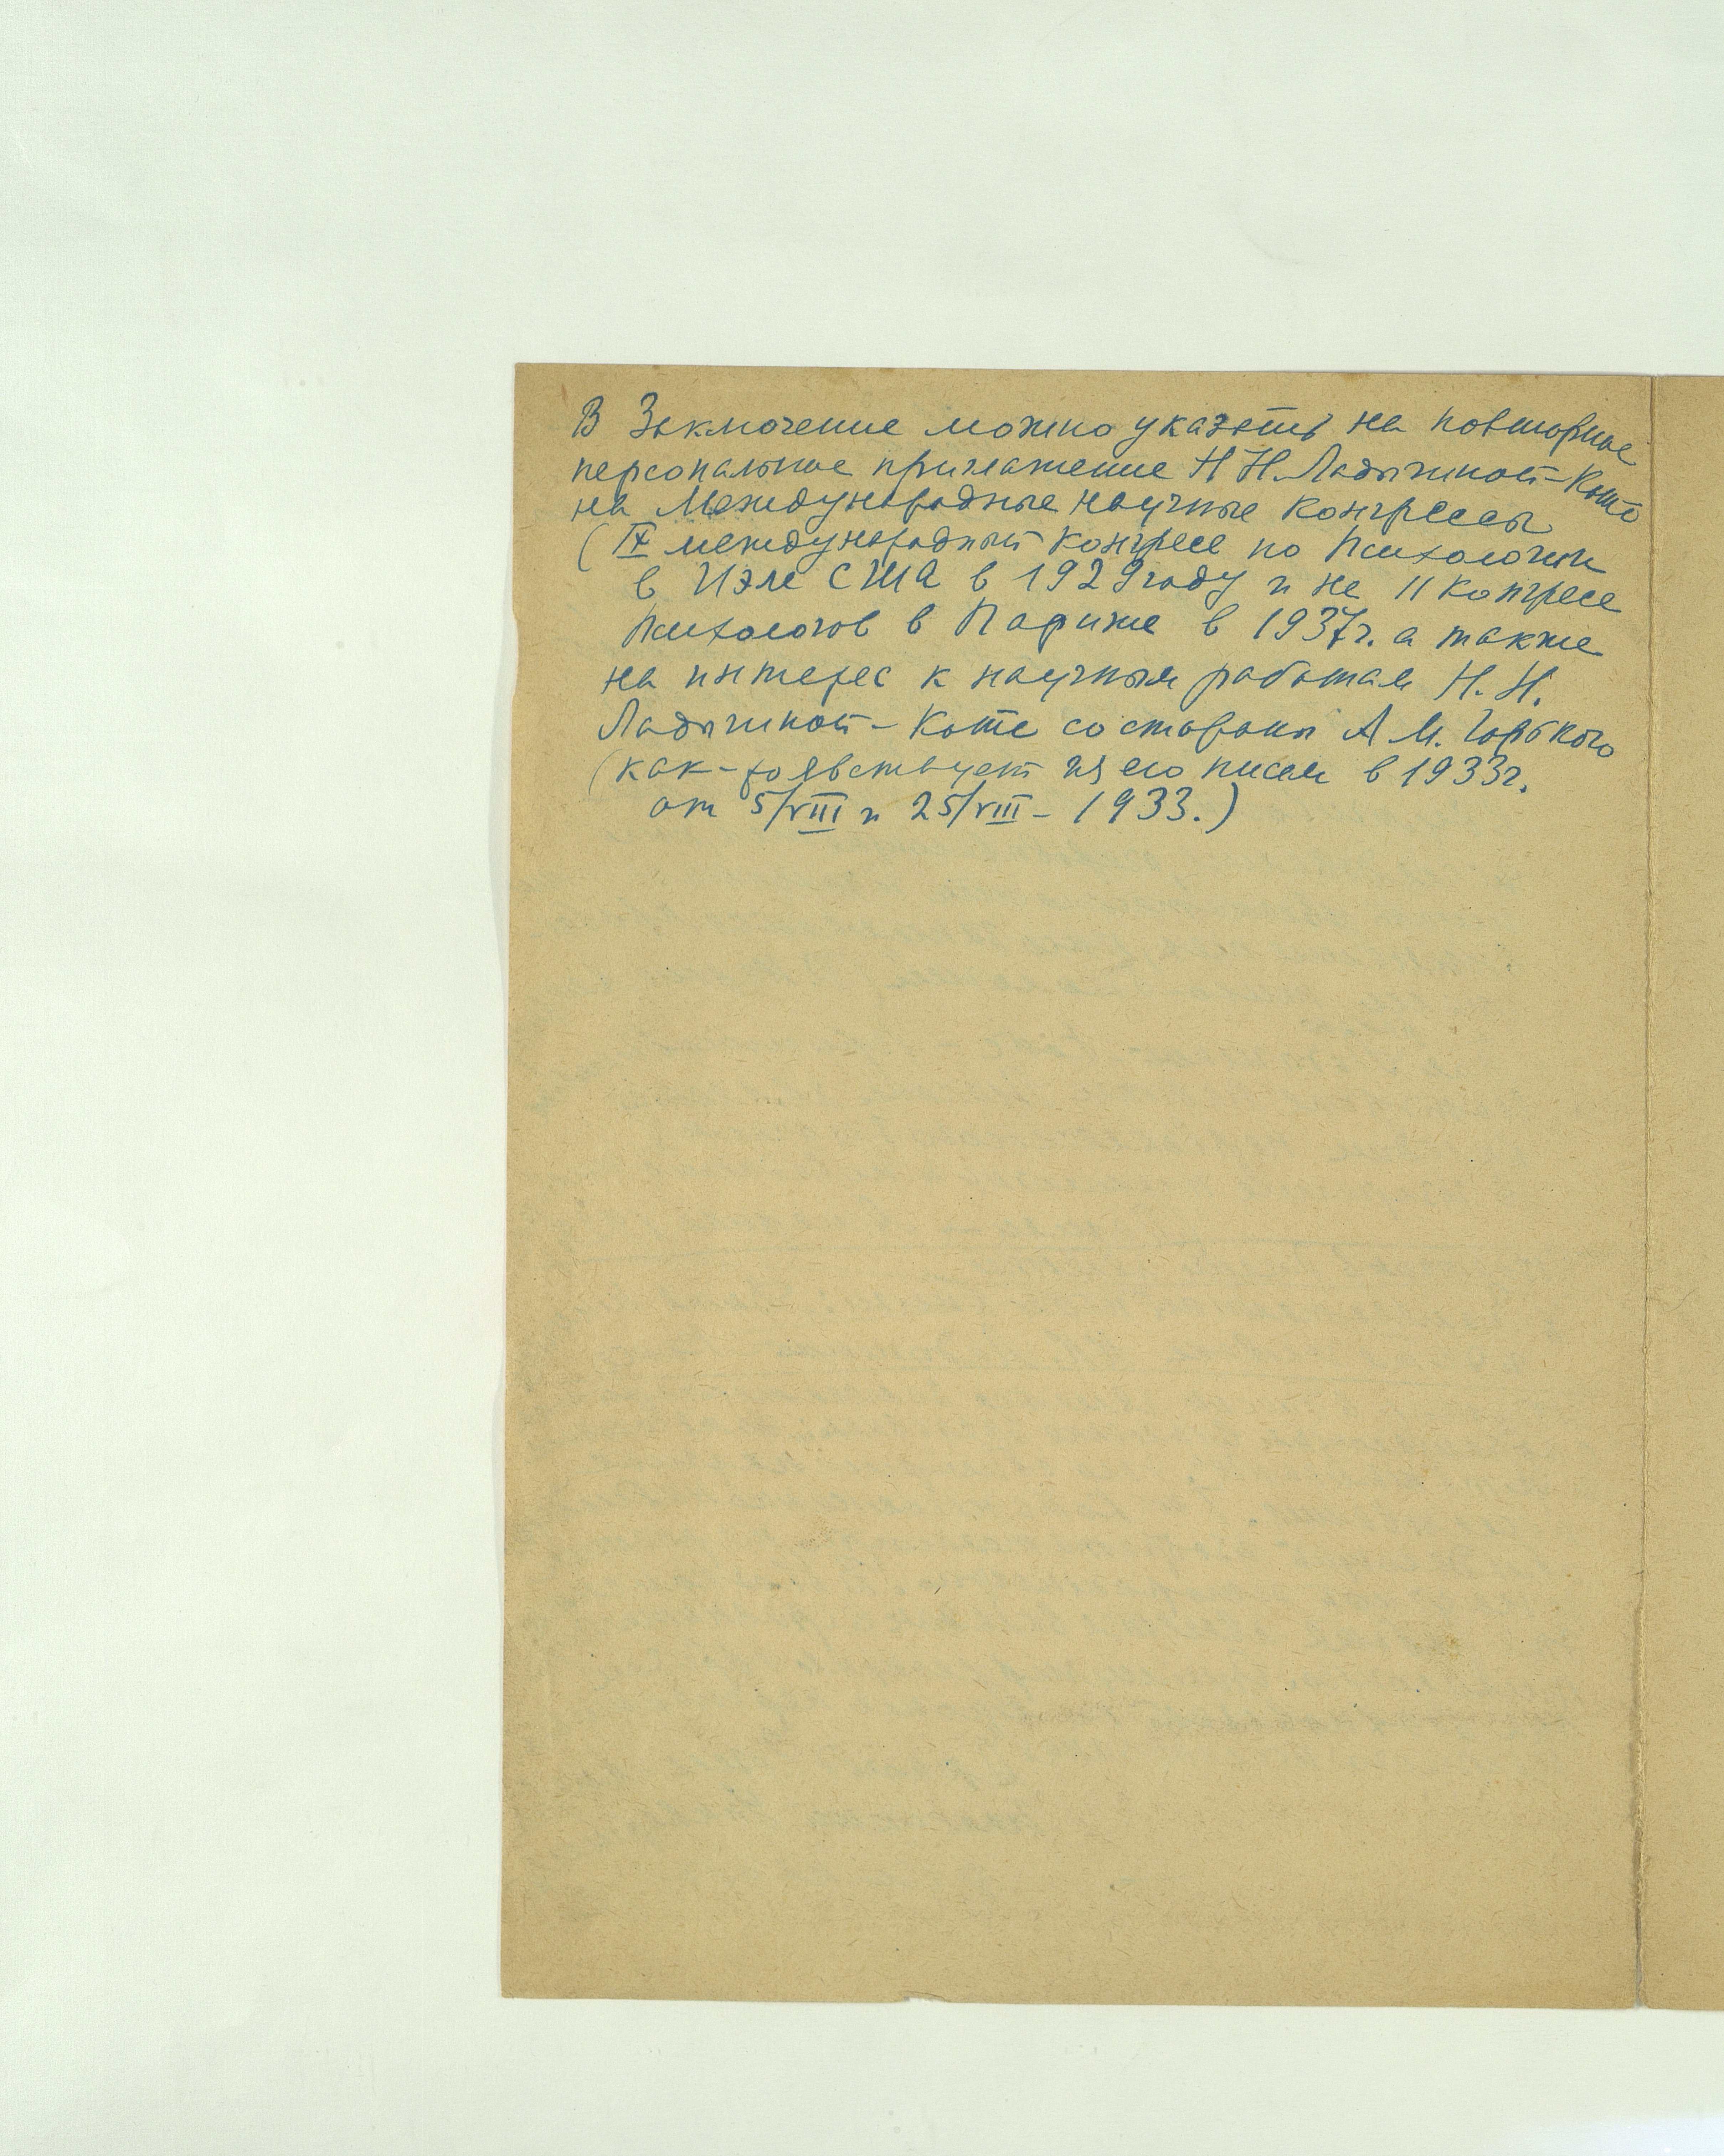 В Заключение можно указать на повторное
персональное приглашение Н Н. Ладыгиной-Котс
на Международные научные Конгрессы
(IX международный Конгресс по Психологии
в Иэле США в 1929 году и на 11 Конгресс
Психологов в Париже в 1937г. а также
на интерес к научным работам Н. Н.
Ладыгиной-Котс со стороны А М. Горького
(как- явствует из его писем в 1933г.
от 5/VIII и 25/VIII - 1933.)